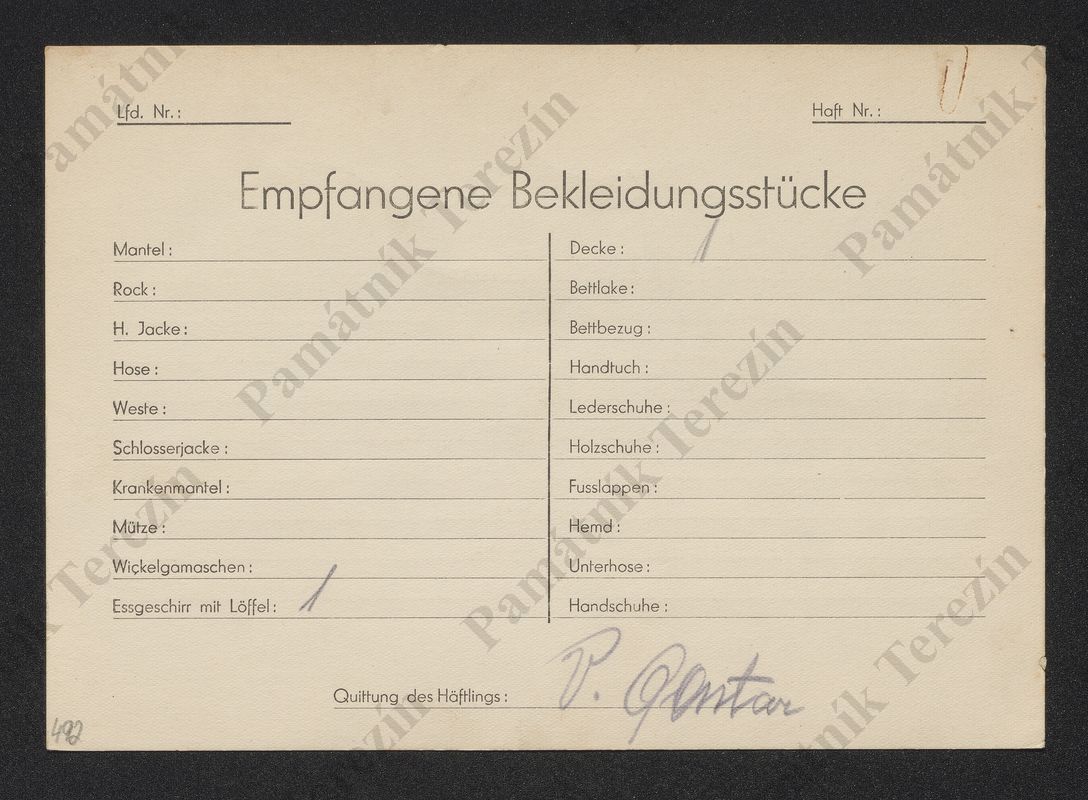 Lfd. Nr.:
Haft Nr.:
Empfangene Bekleidungsstücke
Mantel:
Rock:
H. Jacke:
Hose:
Weste:
Schlosserjacke:
Krankenmantel:
Mütze:
Wickelgamaschen:
Essgeschirr mit Löffel: 1
Decke: 1
Bettlake:
Bettbezug:
Handtuch:
Lederschuhe:
Holzschuhe:
Fusslappen:
Hemd:
Unterhose:
Handschuhe:
Quittung des Häftlings: P.
492
Památník Terezín